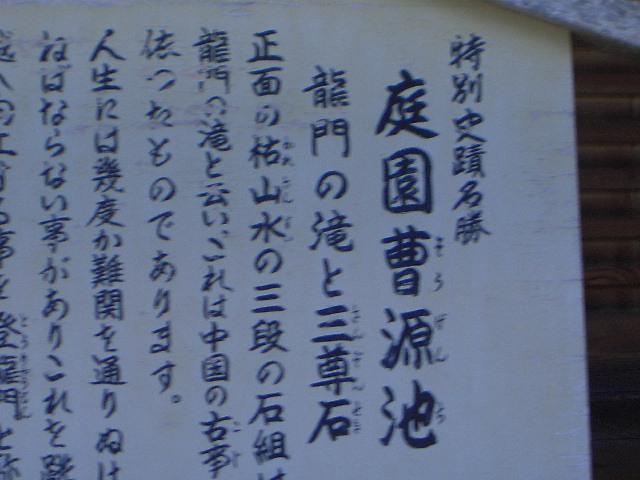 特別史蹟名勝
庭園曹源池
龍門の滝と三尊石
正面の枯山水の三段の石組は
龍門の滝と云いこれは中国の古事
依ったものであります。
人生には幾度か難関を通りぬけ
ねばならない事がありこれを
登龍門と